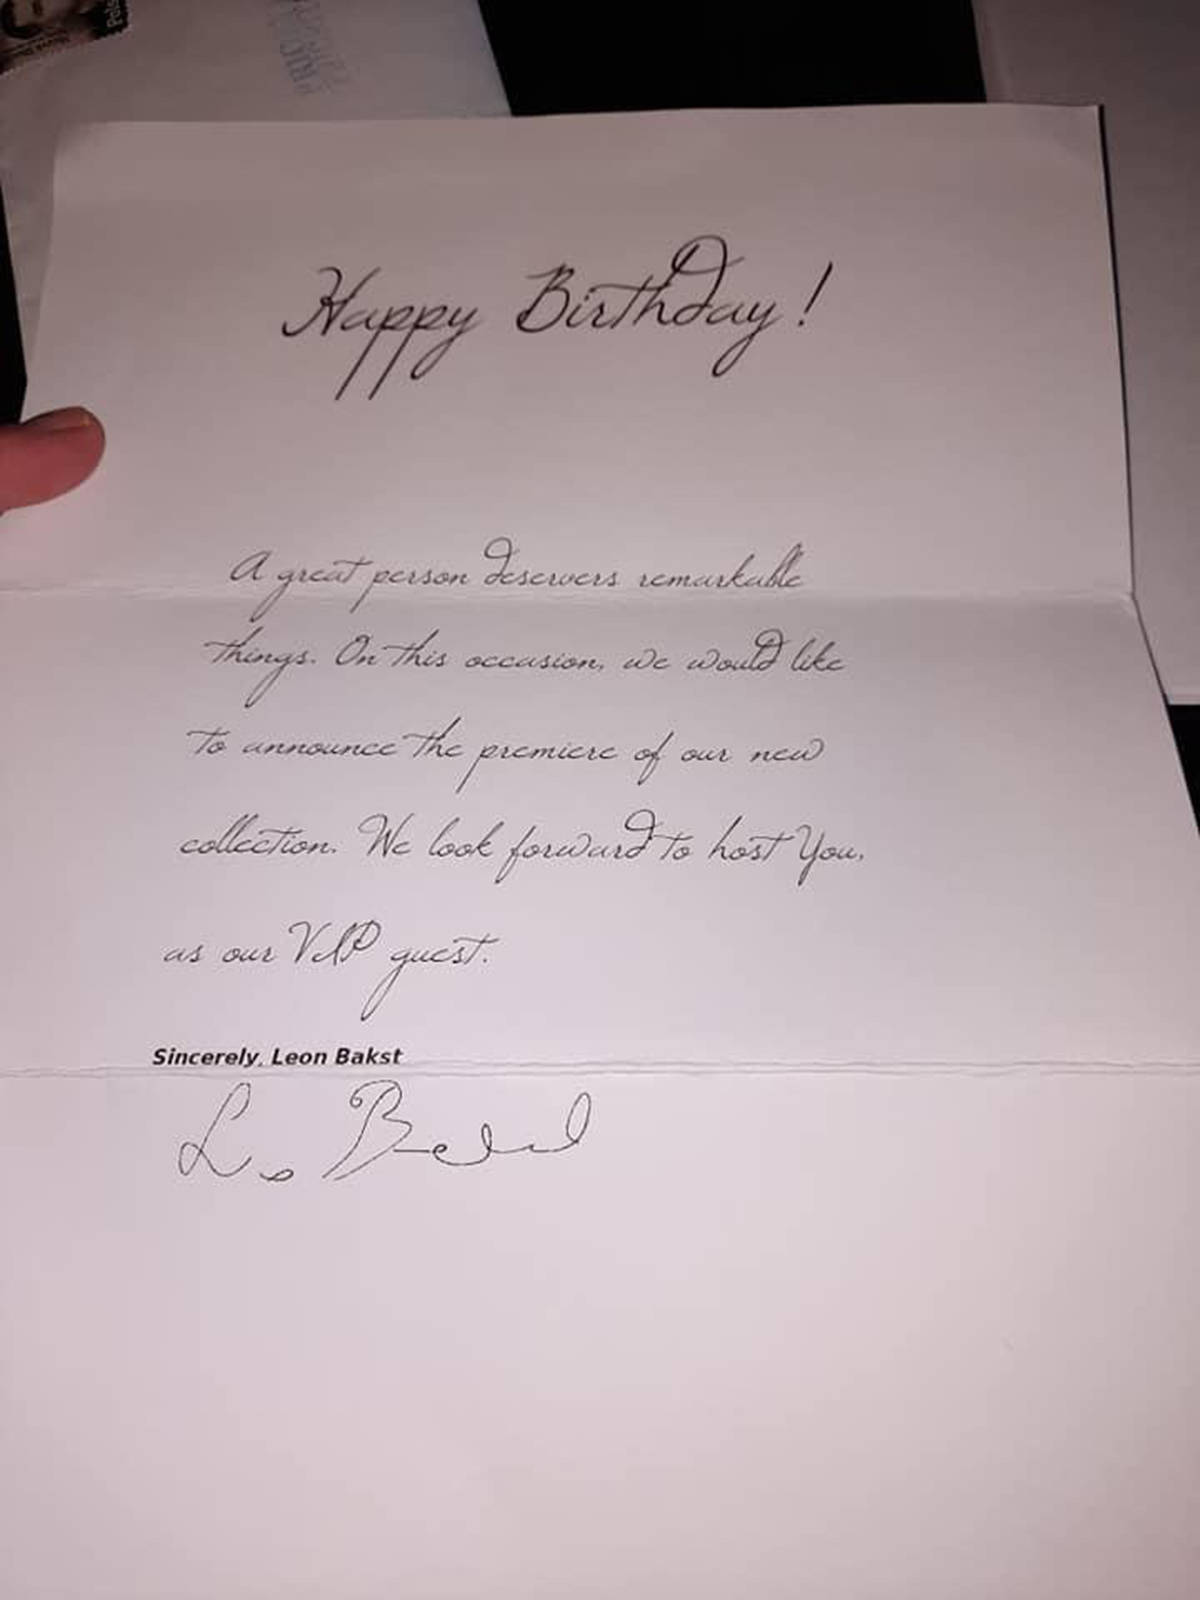 Happy BirthDay!
A great person deservers remarkable
things. On this occasion, we would like
to announce the premiere of our new
collection. We look forward to host You,
as our VIP guest.
Sincerely, Leon Bakst